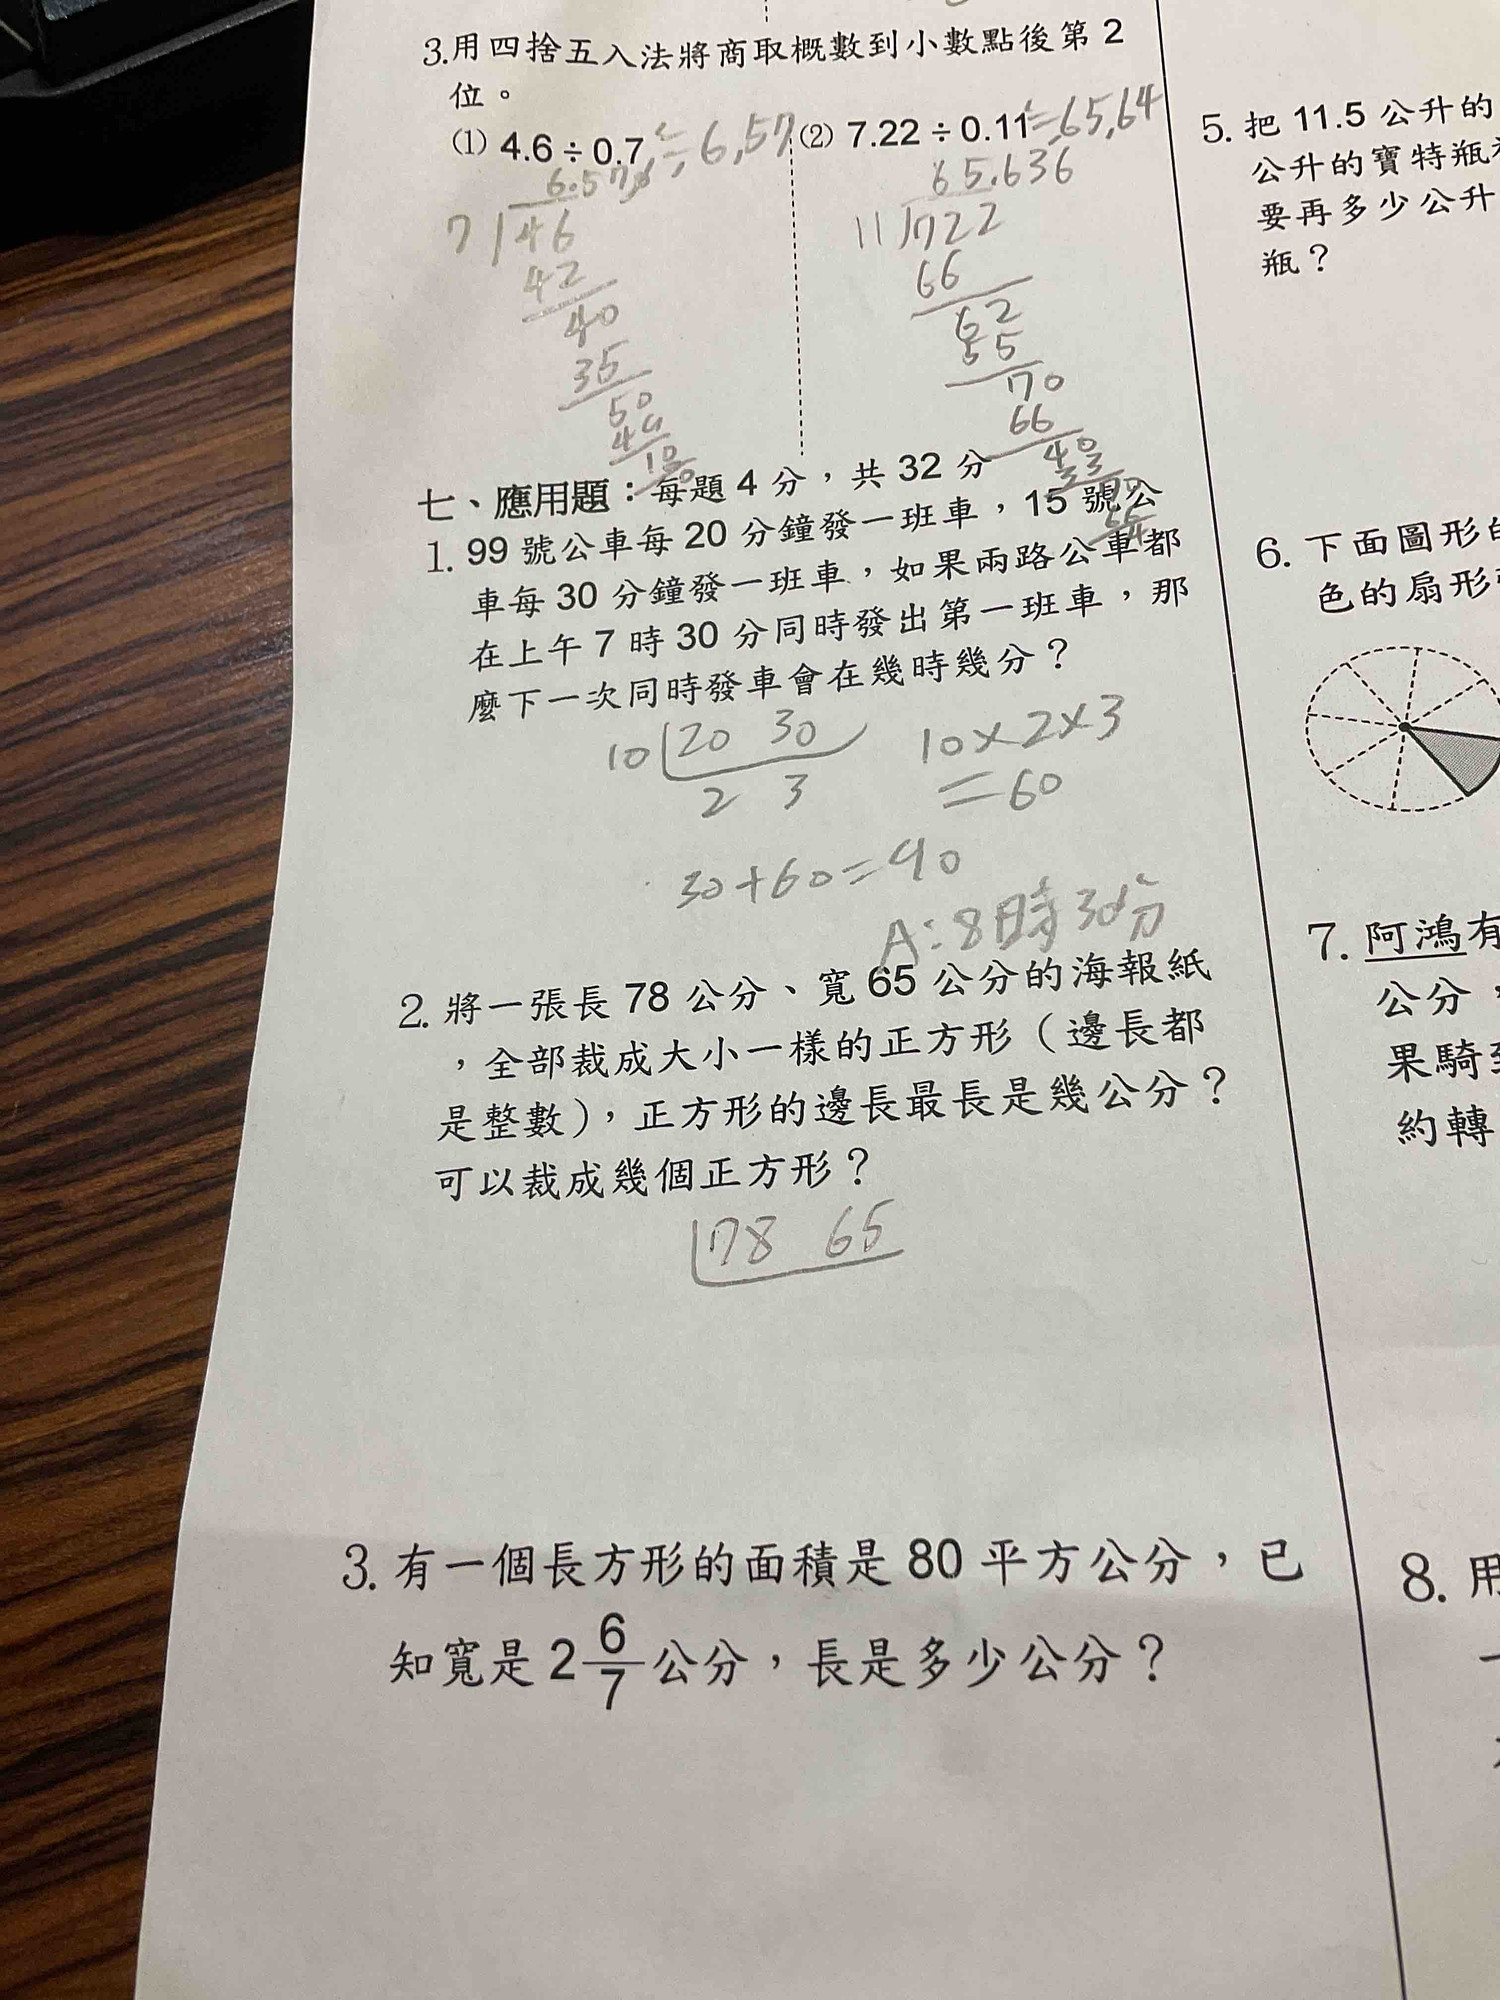 3.用四捨五入法將商取概數到小數點後第2
位。
(1) 4.6÷0.7≒6.57
6.57
7 46
42
40
35
50
49
10
(2) 7.22÷0.11≒65.64
65.636
11 722
66
62
55
70
66
40
33
70
七、應用題：每題4分，共32分
1. 99號公車每20分鐘發一班車，15號公
車每30分鐘發一班車，如果兩路公車都
在上午7時30分同時發出第一班車，那
麼下一次同時發車會在幾時幾分？
10 20 30
2 3
10×2×3
=60
30+60=90
A:8時30分
2. 將一張長78公分、寬65公分的海報紙
，全部裁成大小一樣的正方形（邊長都
是整數），正方形的邊長最長是幾公分？
可以裁成幾個正方形？
78 65
3. 有一個長方形的面積是80平方公分，已
知寬是2 6/7 公分，長是多少公分？
5. 把11.5公升的
公升的寶特瓶
要再多少公升
瓶？
6. 下面圖形
色的扇形
7. 阿鴻有
公分，
果騎
約轉
8. 用